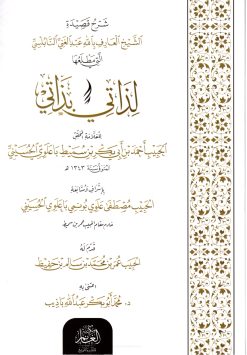 شرح قصيدة
الشيخ العارف بالله عبد الغني النابلسي
التي مطلعها
لذاتي بذاتي
للعلامة المحقق
الحبيب أحمد بن أبي بكر بن سميط باعلوي الحسيني
المتوفى سنة ١٣٤٣ هـ
بإشراف ومتابعة
الحبيب مصطفى علوي يوسفي باعلوي الحسيني
خادم مقام الحبيب عمر بن سميط
قدم له
الحبيب عمر بن محمد بن سالم بن حفيظ
اعتنى به
د. محمد أبو بكر عبد الله باذيب